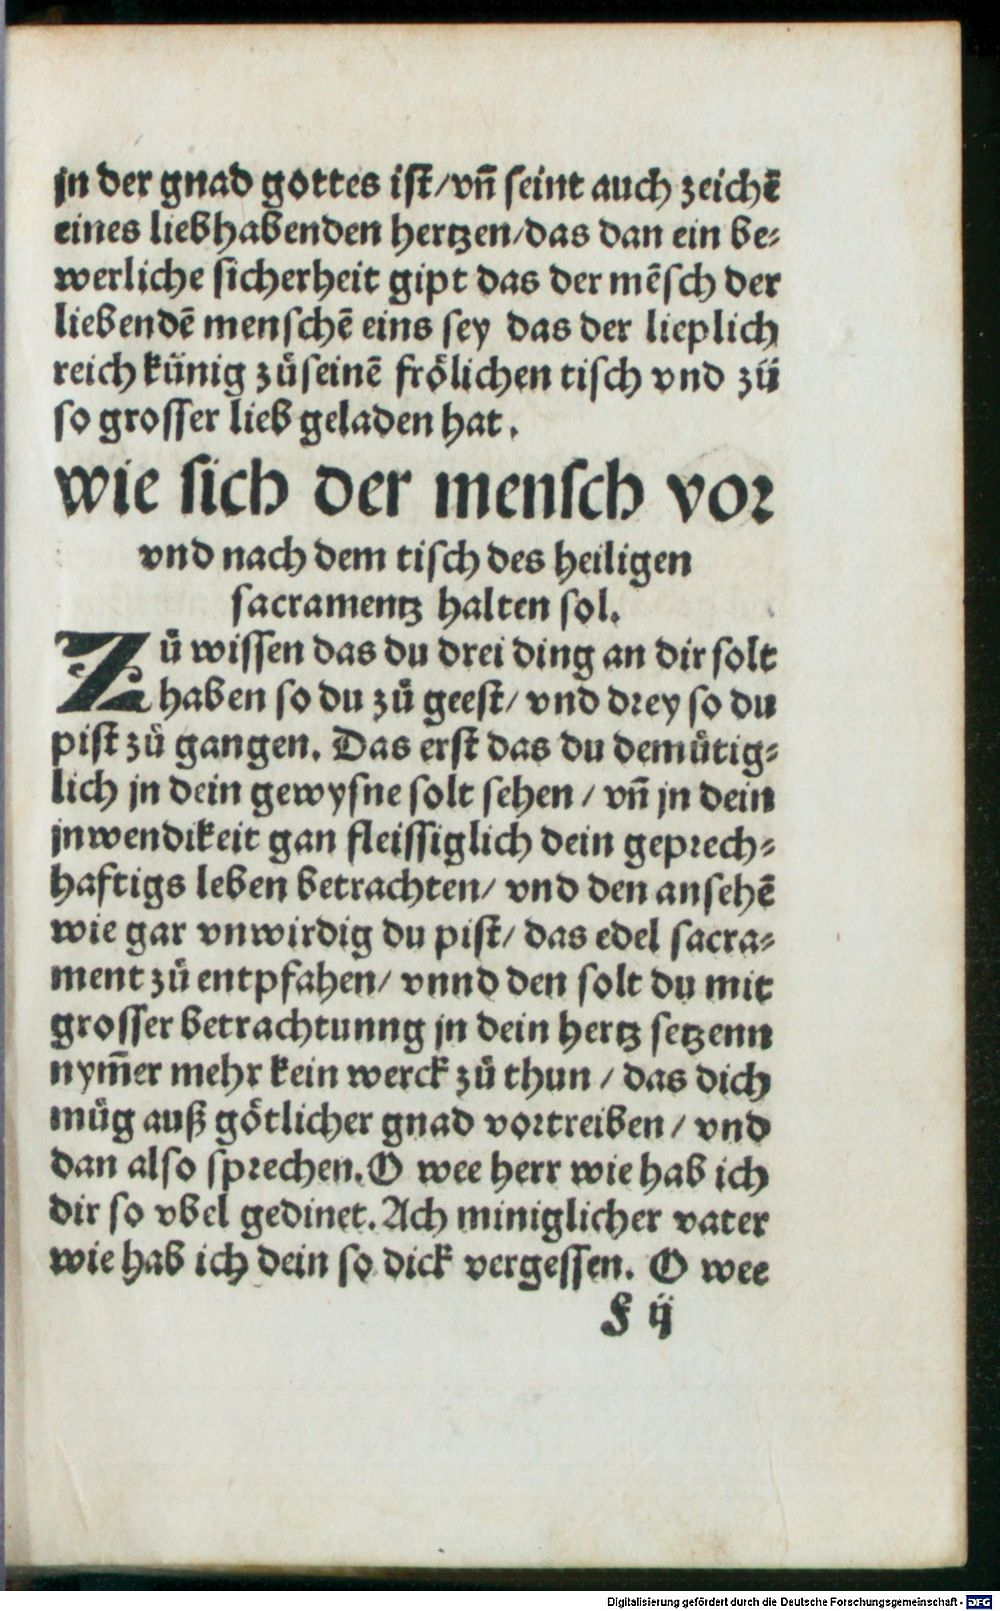 jn der gnad gottes ist/vñ seint auch zeichē
eines liebhabenden hertzen/das dan ein be⸗
werliche sicherheit gipt das der mēsch der
liebendē menschē eins sey das der lieplich
reich künig zůseinē frölichen tisch vnd zů
so grosser lieb geladen hat.
wie sich der mensch vor
vnd nach dem tisch des heiligen
sacramentz halten sol.
Zů wissen das du drei ding an dir solt
haben so du zů geest/ vnd drey so du
pist zů gangen. Das erst das du demůtig⸗
lich jn dein gewysne solt sehen / vñ jn dein
jnwendikeit gan fleissiglich dein geprech⸗
haftigs leben betrachten/ vnd den ansehē
wie gar vnwirdig du pist/ das edel sacra⸗
ment zů entpfahen/ vnnd den solt du mit
grosser betrachtunng jn dein hertz setzenn
nym̄er mehr kein werck zů thun / das dich
můg auß götlicher gnad vortreiben / vnd
dan also sprechen. O wee herr wie hab ich
dir so vbel gedinet. Ach miniglicher vater
wie hab ich dein so dick vergessen. O wee
F ij
Digitalisierung gefördert durch die Deutsche Forschungsgemeinschaft - DFG